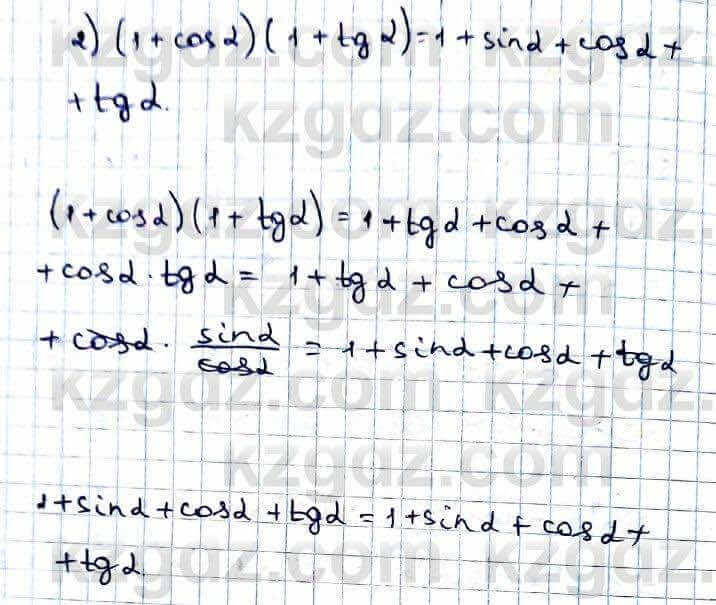 2) (1 + cos α)(1 + tg α) = 1 + sin α + cos α +
+ tg α.
(1 + cos α)(1 + tg α) = 1 + tg α + cos α +
+ cos α · tg α = 1 + tg α + cos α +
+ cos α · sin α / cos α = 1 + sin α + cos α + tg α
1 + sin α + cos α + tg α = 1 + sin α + cos α +
+ tg α.
kzgdz.com